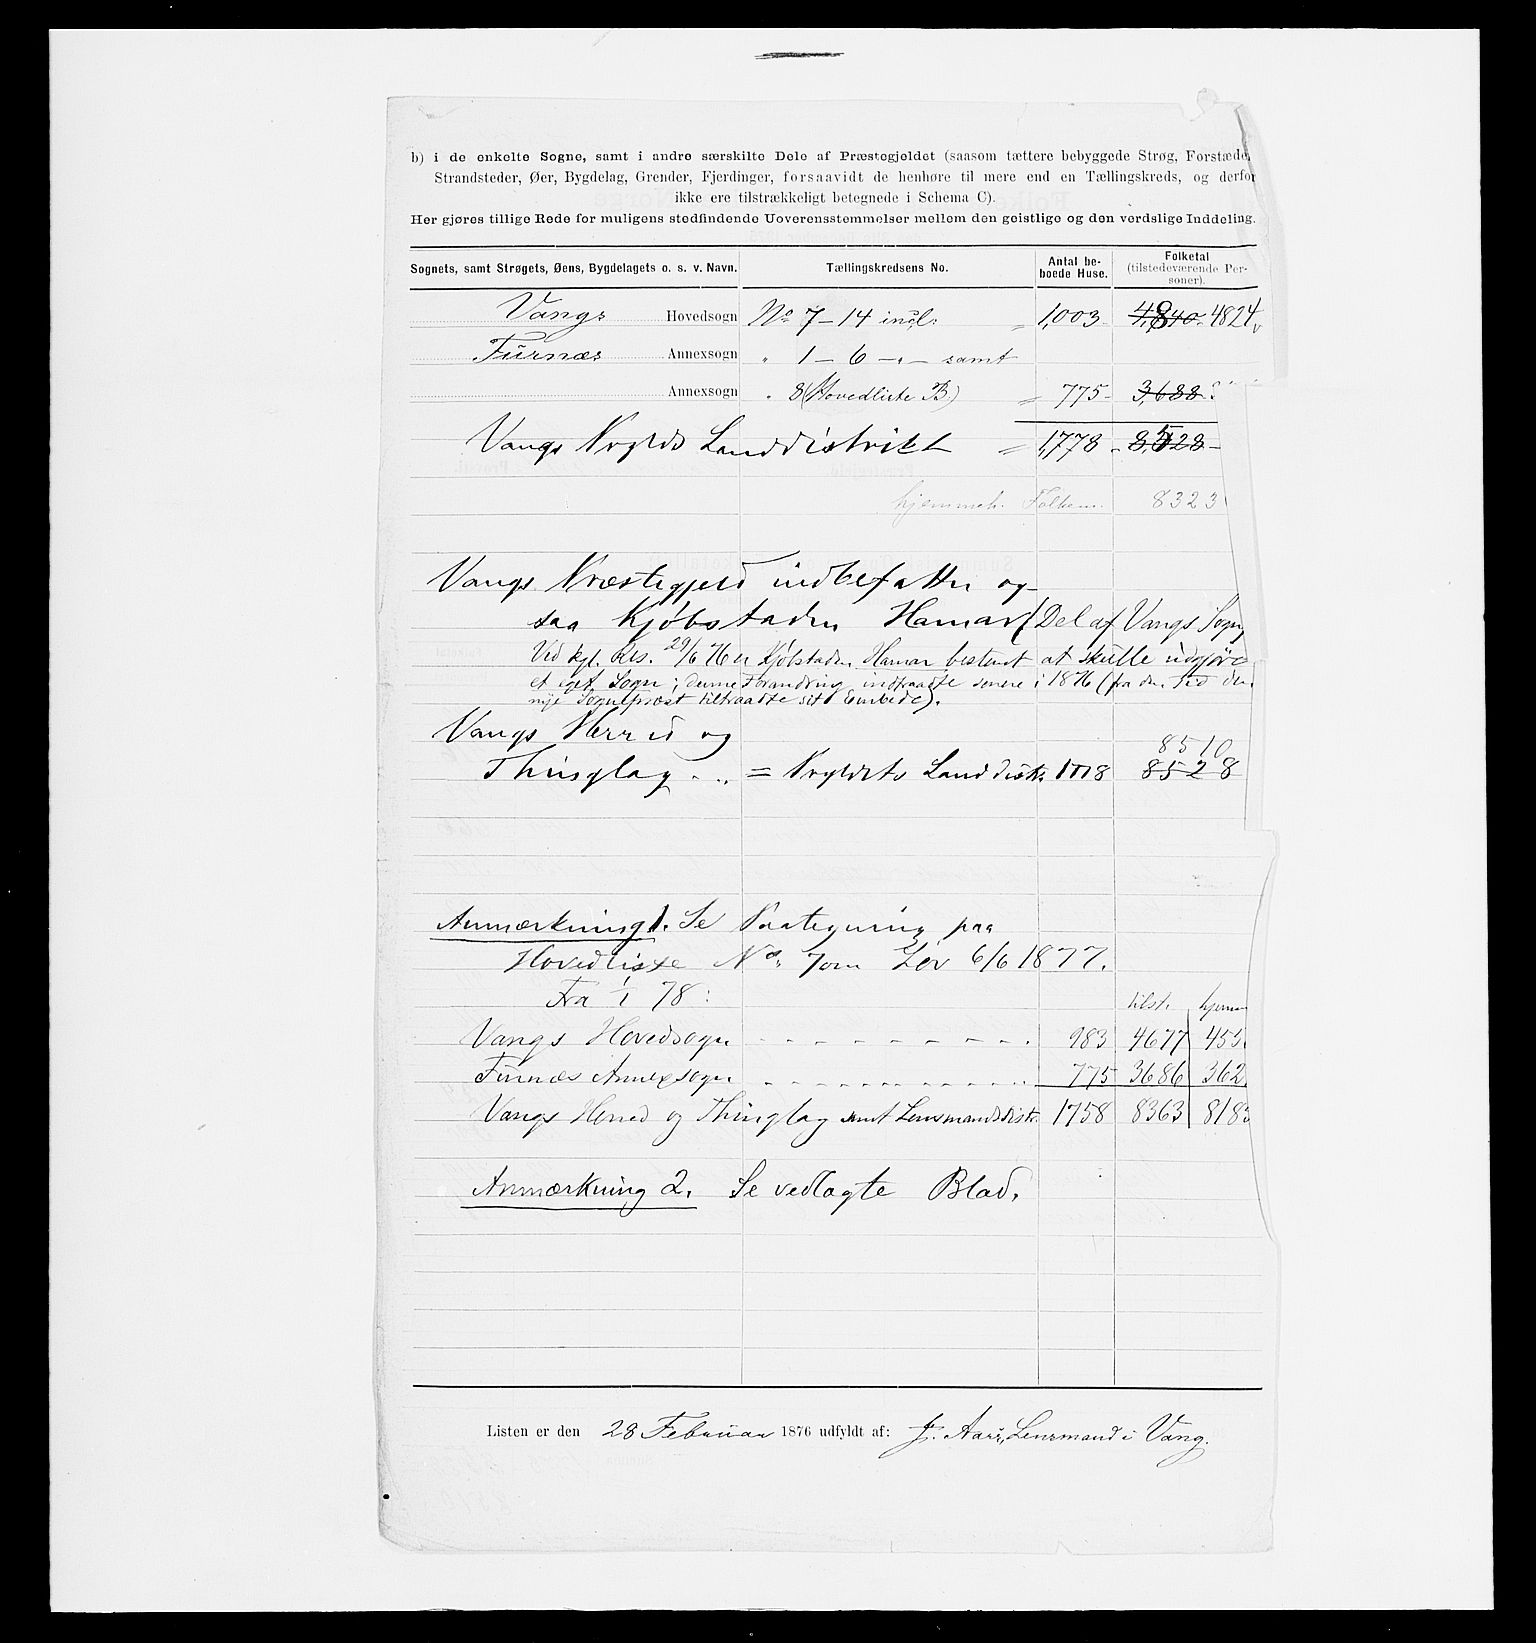 b) i de enkelte Sogne, samt i andre særskilte Dele af Præstegjeldet (saasom tættere bebyggede Strøg, Forstæder,
Strandsteder, Øer, Bygdelag, Grender, Fjerdinger, forsaavidt de henhøre til mere end en Tællingskreds, og derfor
ikke ere tilstrækkeligt betegnede i Schema C).
Her gjøres tillige Rede for muligens stedfindende Uoverensstemmelser mellem den geistlige og den verdslige Inddeling.
Sognets, samt Strøgets, Øens, Bygdelagets o. s. v. Navn. Tællingskredsens No. Antal beboede Huse. Folketal (tilstedeværende Personer).
Vangs Hovedsogn No 7-14 incl: 1,003 4,840 4824
Furnæs Annexsogn " 1-6 -"- samt
Annexsogn " 8 (Hovedliste B) = 775 3,688
Vangs Prgjlds Landdistrikt = 1,778 8,528
hjemmeh. Folkem. 8323
Vangs Præstegjeld indbefatter og-
saa Kjøbstaden Hamar (Del af Vangs Sogn
Ved kgl. Res. 29/6 76 er Kjøbstaden Hamar bestemt at skulle udgjøre
et eget Sogn; denne Forandring indtraadte senere i 1876 (fra den Tid den
nye Sogneprest tiltraadte sit Embede).
Vangs Herred og
8510
Thinglag . . . = Prgjldets Landdistr. 1778 8528
Anmærkning 1. Se Paategning paa
Hovedliste No. 7 om Lov 6/6 1877.
Fra 1/1 78:
tilst. hjemm
Vangs Hovedsogn - - - - - - - - - . 983 4677 455
Furnæs Annexsogn - - - - - - - - . . 775 3686 362
Vangs Herred og Thinglag samt Lensmandsdistr. 1758 8363 8183
Anmærkning 2. Se vedlagte Blad.
Listen er den 28 Februar 1876 udfyldt af: J. Aars, Lensmand i Vang.